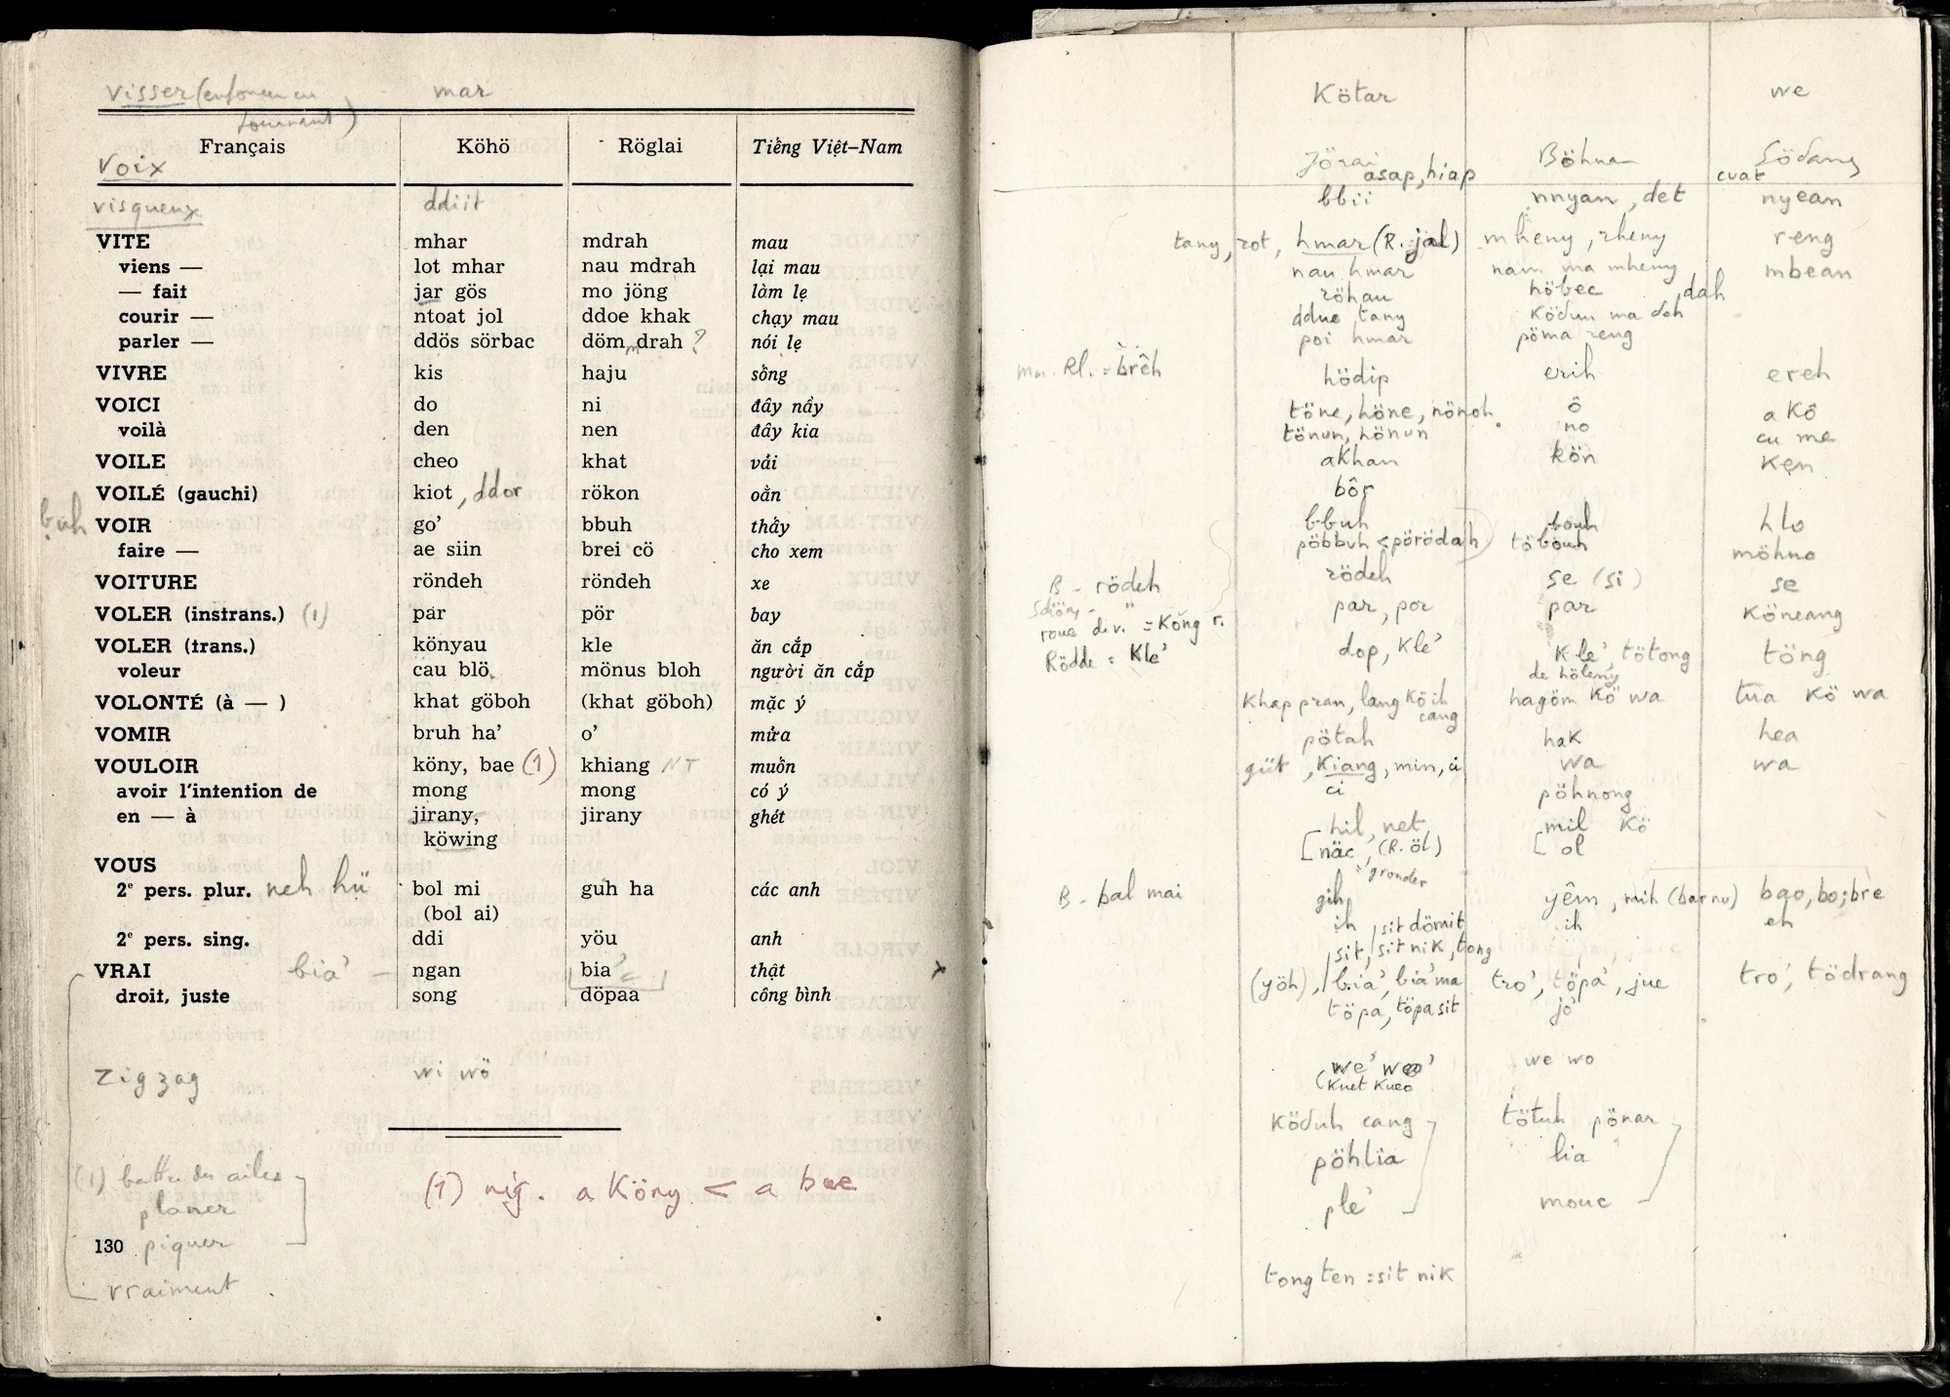 visser (enfoncer en tournant) mar
Français Köhö Röglai Tiếng Việt-Nam
Voix
visqueux ddiit
VITE mhar mdrah mau
viens — lot mhar nau mdrah lại mau
— fait jar gös mo jöng làm lẹ
courir — ntoat jol ddoe khak chạy mau
parler — ddös sörbac döm mdrah ? nói lẹ
VIVRE kis haju sống
VOICI do ni đây nầy
voilà den nen đây kia
VOILE cheo khat vải
VOILÉ (gauchi) kiot, ddor rökon oằn
buh VOIR go’ bbuh thấy
faire — ae siin brei cö cho xem
VOITURE röndeh röndeh xe
VOLER (instrans.) (1) par pör bay
VOLER (trans.) könyau kle ăn cắp
voleur cau blö mönus bloh người ăn cắp
VOLONTÉ (à — ) khat göboh (khat göboh) mặc ý
VOMIR bruh ha’ o’ mửa
VOULOIR köny, bae (1) khiang NT muốn
avoir l’intention de mong mong có ý
en — à jirany, jirany ghét
köwing
VOUS
2e pers. plur. neh hü bol mi guh ha các anh
(bol ai)
2e pers. sing. ddi yöu anh
VRAI bia’ — ngan bia’ thật
droit, juste song döpaa công bình
zigzag wi wö
(1) battre des ailes
planer
(1) nig. a Köny < a bae
130 piquer
vraiment
Kötar we
Jörai Böhna Södang
asap, hiap cuat
bbii nnyan, det nyean
tany, rot, hmar (R. jal) mheny, rheny reng
nau hmar nam ma mheny mbean
röhau höbec dah
ddue tany Ködau ma deh
poi hmar pöma reng
Rl. = brêh hödip erih ereh
töne, höne, nönoh ô a Kô
tönun, hönun no cu me
akhan kön Ken
bôr
bbuh bouh hlo
pöbbuh < pörödah töbouh möhno
B - rödeh rödeh se (si) se
par, por par Köneang
roue = Kong r.
Rödde = Kle’ dop, Kle’ Kle’, tötong töng
de höleny
Khap pran, lang Kö ih hagöm Kö wa tua Kö wa
cang
pötah hak hea
güt, Kiang, min, ci wa wa
ci pöhnong
hil, net mil Kö
[näc, (R. öl) [ öl
gronder
B - bal mai gih yêm, mih (bar nu) bao, bo; bre
ih, sit dömit ih eh
sit, sit nik, tong
(yöh), bia’, bia’ ma tro’, töpa’, jue tro’, tödrang
töpa, töpa sit jô
we’ weo’ we wo
(Kuet Kueo
Köduh cang tötuh pönar
pöhlia lia
ple’ mouc
tong ten = sit nik